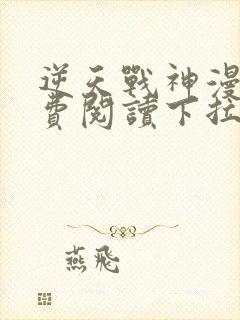 逆天戰神漫
費閱讀下拉
燕飛